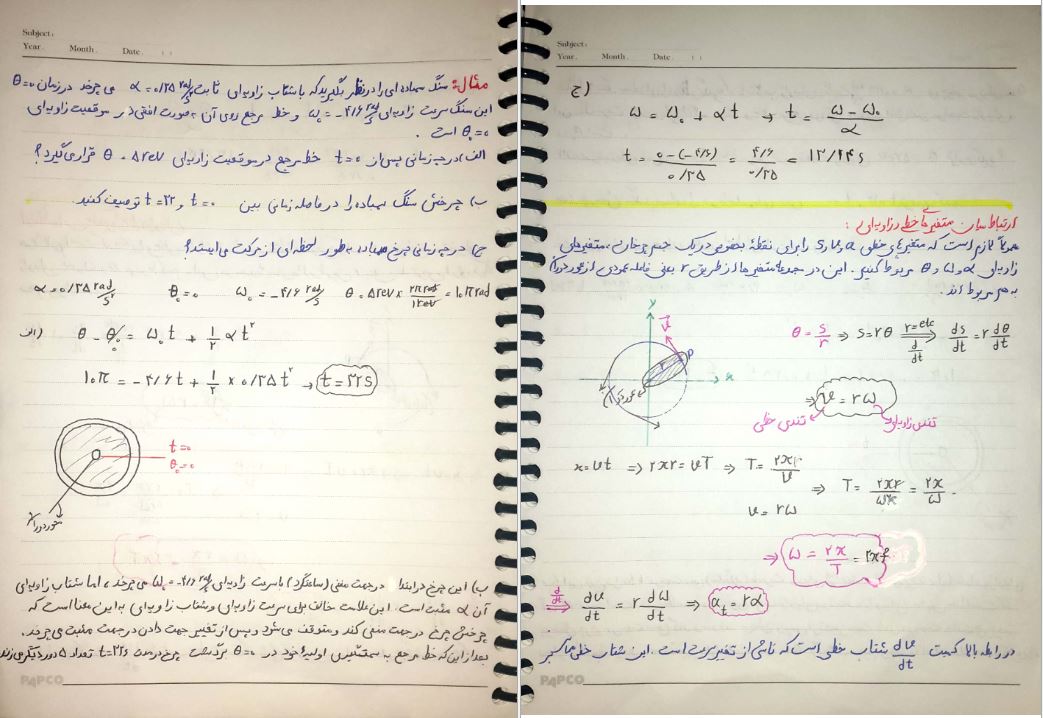 Subject:
Year. Month. Date.
مثال: سنگ سمباده ای را در نظر بگیرید که با شتاب زاویه ای ثابت α = ۰/۳۵ rad/s² می چرخد در زمان t=۰
این سنگ سرعت زاویه ای ω₀ = -۴/۶ rad/s و خط مرجع روی آن به صورت افقی در موقعیت زاویه ای
θ₀=۰ است.
الف) در چه زمانی پس از t=۰ خط مرجع در موقعیت زاویه ای θ = ۵rev قرار می گیرد؟
ب) چرخش سنگ سمباده را در فاصله زمانی بین t=۰ و t=۳۲ توصیف کنید.
ج) در چه زمانی چرخ سمباده به طور لحظه ای از حرکت می ایستد؟
α=۰/۳۵ rad/s² θ₀=۰ ω₀=-۴/۶ rad/s θ=۵rev × ۲π rad/۱rev = ۱۰π rad
الف) θ - θ₀ = ω₀t + ۱/۲ αt²
۱۰π = -۴/۶t + ۱/۲ × ۰/۳۵t² → t=۳۲s
t=۰
θ₀=۰
محور دوران
ب) این چرخ در ابتدا در جهت منفی (ساعتگرد) با سرعت زاویه ای ω₀=-۴/۶ rad/s می چرخد، اما شتاب زاویه ای
آن α مثبت است. این علامت مخالف برای سرعت زاویه ای و شتاب زاویه ای به این معنا است که
چرخش چرخ در جهت منفی کند و متوقف می شود و پس از تغییر جهت دادن در جهت مثبت می چرخد.
بعد از این که خط مرجع به سمت اولیه خود در θ=۰ برگشت چرخ در مدت t=۳۲s تعداد ۵ دور دیگر می زند
PAPCO
Subject:
Year. Month. Date.
ج)
ω = ω₀ + αt → t = (ω - ω₀)/α
t = (۰-(-۴/۶))/۰/۳۵ = ۴/۶/۰/۳۵ = ۱۳/۱۴ s
ارتباط میان متغیرهای خطی و زاویه ای:
لازم است که متغیرهای خطی s و v و a را برای نقطه بخصوص در یک جسم چرخان، متغیرهای
زاویه ای θ و ω و α مربوط کنیم. این دو متغیرها از طریق r یعنی فاصله عمودی از محور دوران
به هم مربوط اند.
θ = s/r ⇒ s=rθ r=cte ⇒ d/dt ds/dt = r dθ/dt
y
v
p
r
x
محور دوران
⇒ v = rω
تندی خطی تندی زاویه ای
x=vt ⇒ ۲πr = vT ⇒ T = ۲πr/v
⇒ T = ۲πr/ωr = ۲π/ω
v = rω
⇒ ω = ۲π/T = ۲πf
d/dt ⇒ dv/dt = r dω/dt ⇒ aₜ = rα
در رابطه بالا کمیت dv/dt شتاب خطی است که ناشی از تغییر سرعت است. این شتاب خطی
PAPCO